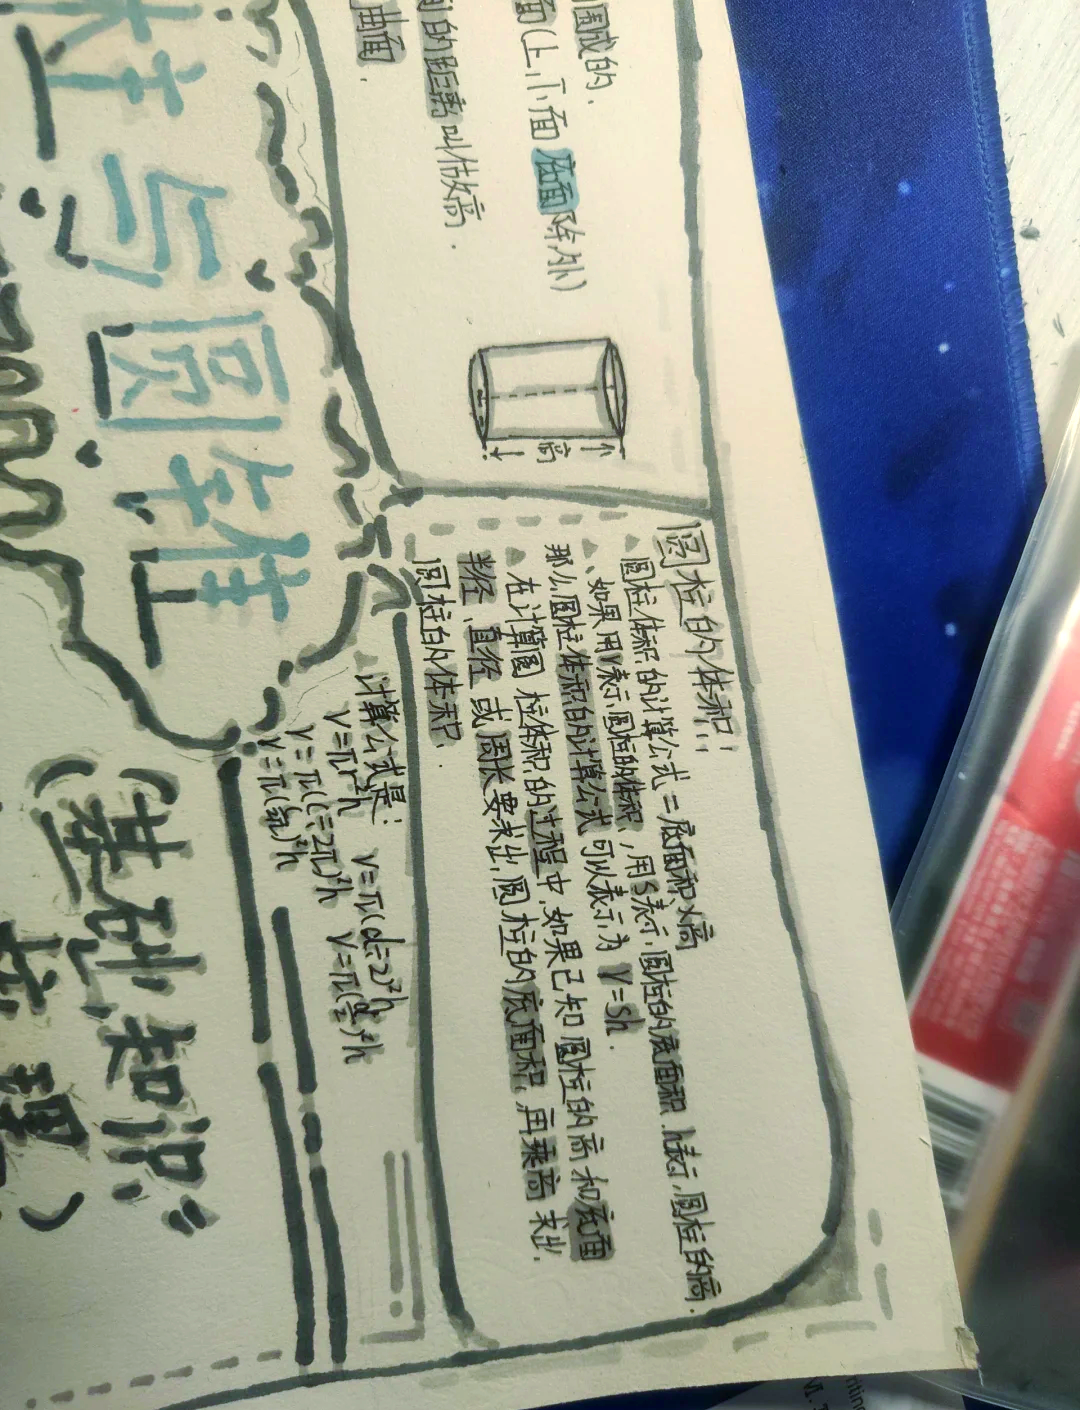 围成的.
面(上、下面底面除外)
的距离叫做高.
曲面.
高
圆柱的体积:
圆柱体积的计算公式=底面积×高
如果用V表示圆柱的体积,用S表示圆柱的底面积.h表示圆柱的高.
那么圆柱体积的计算公式可以表示为 V=Sh.
在计算圆柱体积的过程中,如果已知圆柱的高和底面
半径、直径或周长要求出圆柱的底面积,再乘高求出.
圆柱的体积.
计算公式是: V=π(d÷2)²h
V=πr²h V=π(d/2)²h
V=π(C÷2π)²h
V=π(C/2π)²h
柱与圆锥
(基础知识”
整理)